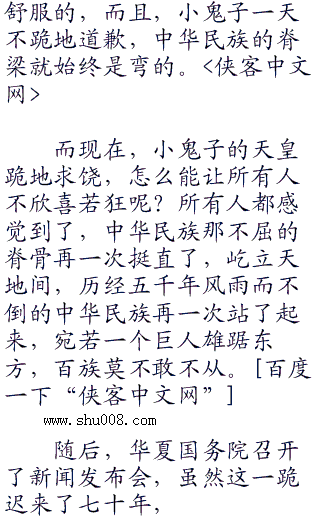 舒服的，而且，小鬼子一天
不跪地道歉，中华民族的脊
梁就始终是弯的。<侠客中文
网>
而现在，小鬼子的天皇
跪地求饶，怎么能让所有人
不欣喜若狂呢？所有人都感
觉到了，中华民族那不屈的
脊骨再一次挺直了，屹立天
地间，历经五千年风雨而不
倒的中华民族再一次站了起
来，宛若一个巨人雄踞东
方，百族莫不敢不从。[百度
一下“侠客中文网”]
www.shu008.com
随后，华夏国务院召开
了新闻发布会，虽然这一跪
迟来了七十年，